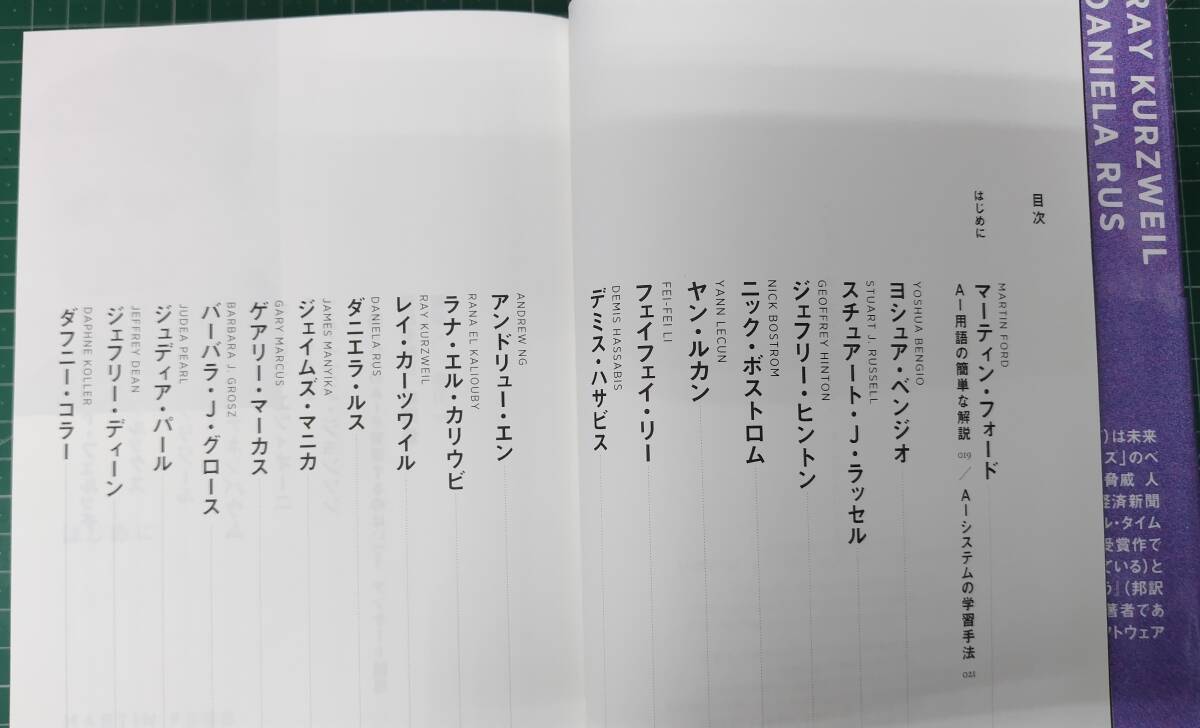 目次
はじめに
MARTIN FORD
マーティン・フォード
AI用語の簡単な解説 019 / AIシステムの学習手法 021
YOSHUA BENGIO
ヨシュア・ベンジオ
STUART J. RUSSELL
スチュアート・J・ラッセル
GEOFFREY HINTON
ジェフリー・ヒントン
NICK BOSTROM
ニック・ボストロム
YANN LECUN
ヤン・ルカン
FEI-FEI LI
フェイフェイ・リー
DEMIS HASSABIS
デミス・ハサビス
ANDREW NG
アンドリュー・エン
RANA EL KALIOUBY
ラナ・エル・カリウビ
RAY KURZWEIL
レイ・カーツワイル
DANIELA RUS
ダニエラ・ルス
JAMES MANYIKA
ジェイムズ・マニカ
GARY MARCUS
ゲアリー・マーカス
BARBARA J. GROSZ
バーバラ・J・グロース
JUDEA PEARL
ジュディア・パール
JEFFREY DEAN
ジェフリー・ディーン
DAPHNE KOLLER
ダフニー・コラー
RAY KURZWEIL
DANIELA RUS
)は未来
ズ」のベ
脅威 人
経済新聞
ル・タイム
受賞作で
ている)と
う』(邦訳
著者であ
フトウェア